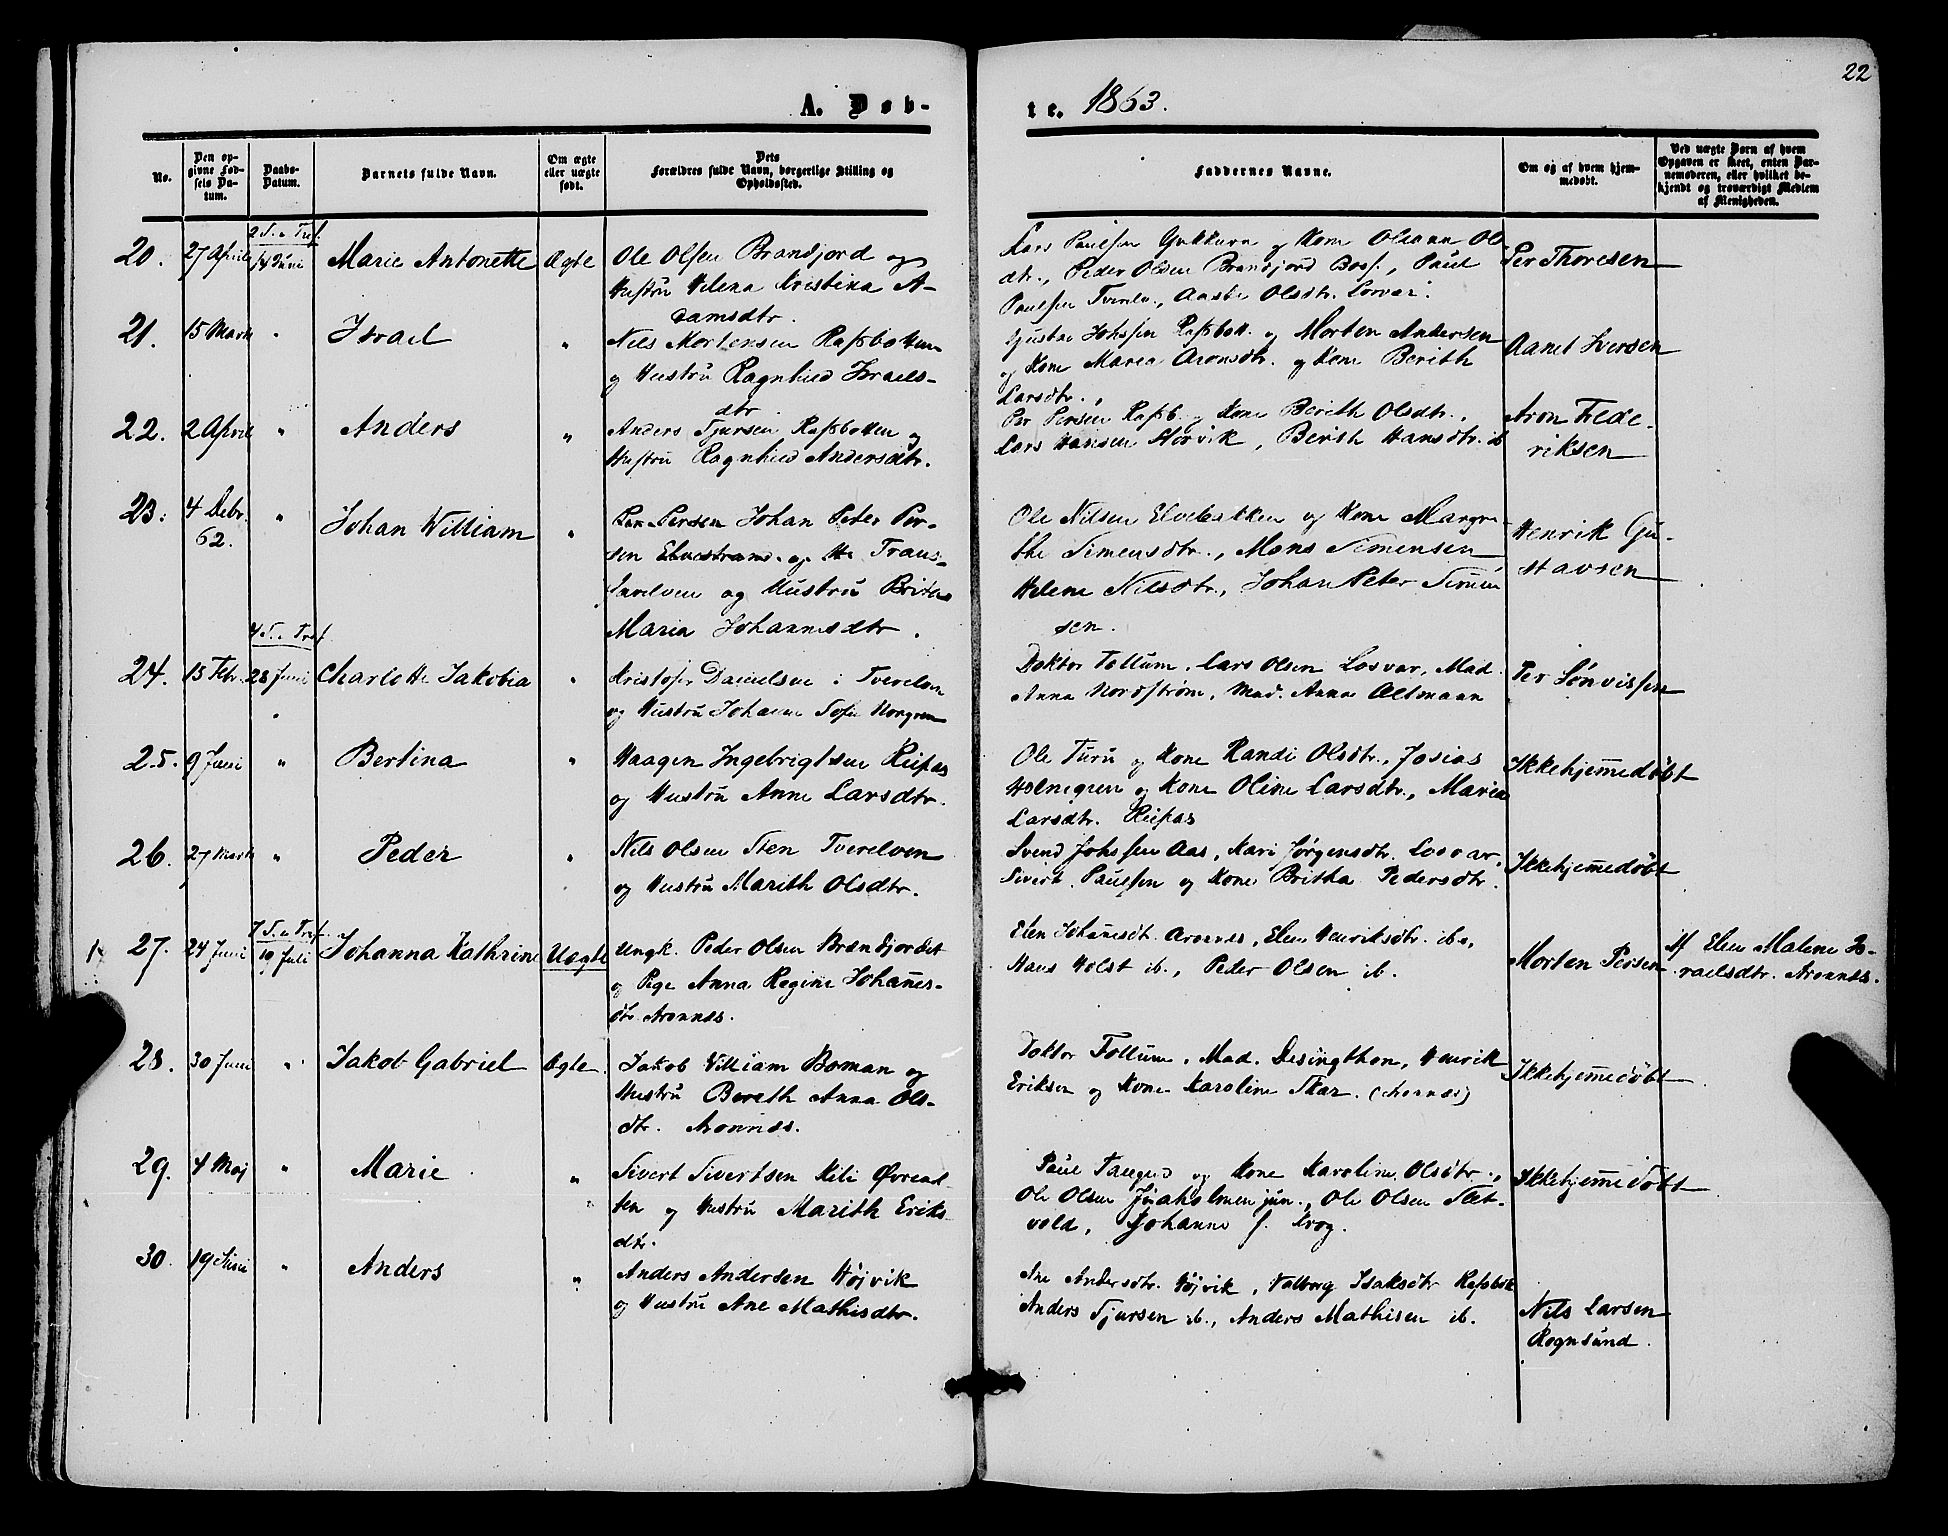 22
A. Døb-
te. 1863.
No.
Den op-
givne Fød-
sels Da-
tum.
Daabs-
Datum.
Barnets fulde Navn.
Om ægte
eller uægte
født.
Dets
Forældres fulde Navn, borgerlige Stilling og
Opholdssted.
Faddernes Navne.
Om og af hvem hjem-
medøbt.
Ved uægte Børn af hvem
Opgaven er skeet, enten Bar-
nemoderen, eller hvilket be-
kjendt og troværdigt Medlem
af Menigheden.
2 S. e Tref.
20. 27 April 14 Juni Marie Antonette Ægte
Ole Olsen Brandjord og
Hustru Helena Kristina A-
damsdtr.
Lars Paulsen og Kone Olsdtr., Peder Olsen Brandjord Boss., Paul
Paulsen Tverelv., Olsdtr.
Per Thoresen
21. 15 Marts " Israel "
Nils Mortensen Rafsbotten
og Hustru Ragnhild Israels-
dtr
Gustav Johssen Rafsbott. og Morten Andersen
og Kone Maria Aronsdtr. og Kone Berith
Larsdtr.,
Aanet Iversen
22. 2 April " Anders "
Anders Sjursen Rafsbotten og
Hustru Ragnhild Andersdtr.
Per Persen Rafsb. og Kone Berith Olsdtr.,
Lars Hansen Storvik, Berith Hansdtr. ib
Aron Fede-
riksen
23. 4 Debr. 62. " Johan William "
Per Persen Johan Peter Per-
sen Elvestrand og H Trans-
farelven og Hustru Brita
Maria Johannesdtr.
Ole Nilsen Elvebakken og Kone Margre
the Simensdtr., Mons Simensen
Helene Nilsdtr., Johan Peter Simen
sen.
Henrik Gu-
stavsen
4 S. e Tref.
24. 15 Febr. 28 Juni Charlotte Jakobia "
Kristofer Danielsen i Tverelven
og Hustru Johanna Sofie Norgren
Doktor Tollum. Lars Olsen Losvar, Mad.
Anna Nordstrøm, Mad. Anna Oltmaan
Per Sønvissen
25. 9 Juni " Bertina "
Haagen Ingebrigtsen Reipas
og Hustru Anne Larsdtr.
Ole Turu og Kone Randi Olsdtr., Josias
Holmgren og Kone Oline Larsdtr., Maria
Larsdtr. Reipas
Ikkehjemmedøbt
26. 27 Marts " Peder "
Nils Olsen Sten Tverelven
og Hustru Marith Olsdtr.
Svend Johssen Aas, Kari Jørgensdtr. Losvar,
Sivert Paulsen og Kone Britha Pedersdtr.
Ikkehjemmedøbt
7 S. e Tref.
27. 24 Juni 19 Juli Johanna Kathrine Uægte
Ungk. Peder Olsen Brandjordet
og Pige Anna Regine Johannes-
dtr Aronnes.
Elen Johannesdt. Aronnes, Elen Henriksdtr. ib.,
Hans Holst ib., Peder Olsen ib.
Morten Persen
Af Elen Malene Is-
raelsdtr. Aronnes.
28. 30 Juni " Jakob Gabriel Ægte
Jakob William Boman og
Hustru Bereth Anna Ols-
dtr. Aronnes.
Doktor Tollum, Mad. Desingthon, Henrik
Eriksen og Kone Karoline Skar. (Aronnes)
Ikkehjemmedøbt
29. 4 Maj " Marie "
Sivert Sivertsen Kili Øvreal-
ten og Hustru Marith Eriks
dtr.
Paul Taugen og Kone Karoline Olsdtr.,
Ole Olsen Jøraholmen jun., Ole Olsen Slet-
vold, Johanne f. Krog.
Ikkehjemmedøbt
30. 19 Juni " Anders "
Anders Andersen Højvik
og Hustru Ane Mathisdtr.
Ane Andersdtr. Højvik, Valborg Isaksdtr Rafsbotn
Anders Sjursen ib., Anders Mathisen ib.
Nils Larsen
Rognsund.